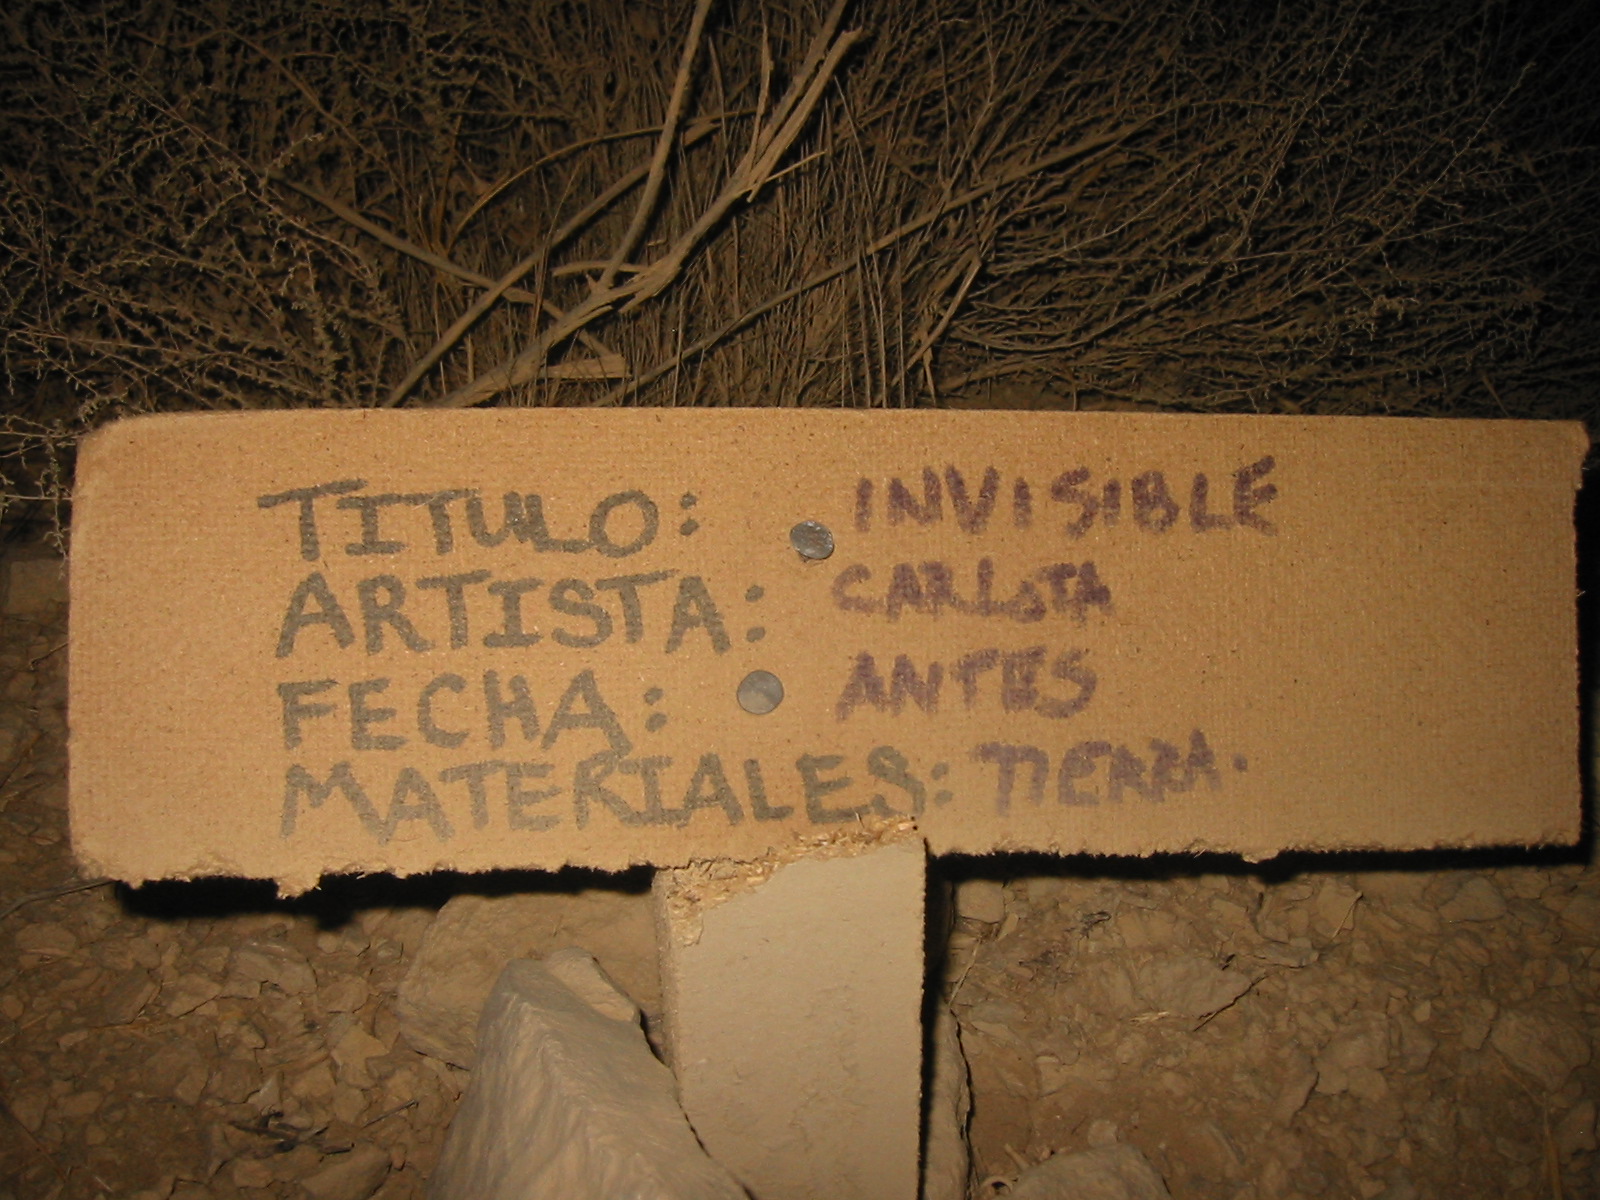 TITULO: INVISIBLE
ARTISTA: CARLOTA
FECHA: ANTES
MATERIALES: TIERRA.